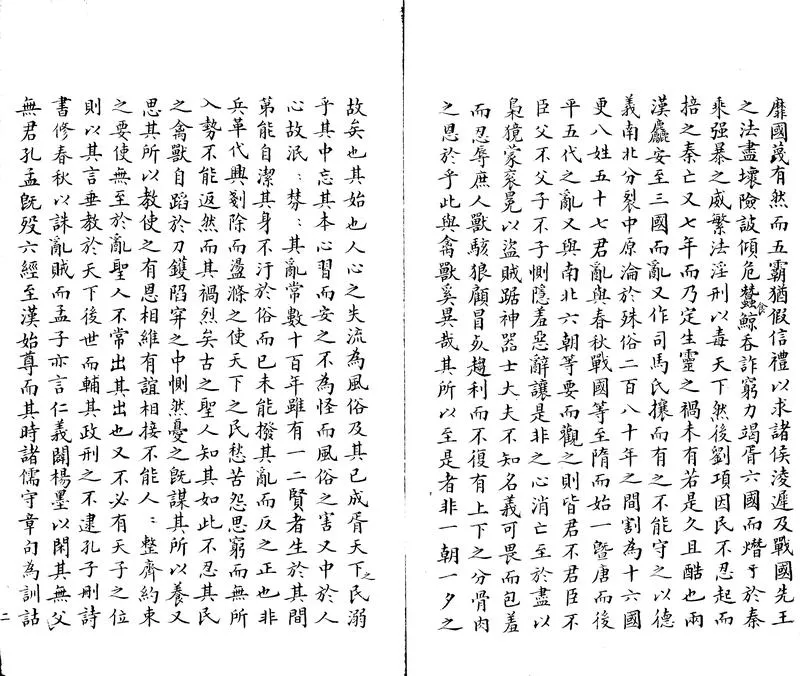 靡國蔑有然而五霸猶假信禮以求諸侯淩遲及戰國先王
之法盡壞險詖傾危蠶食鯨吞詐窮力竭胥六國而熸于於秦
乘强暴之威繁法淫刑以毒天下然後劉項因民不忍起而
掊之秦亡又七年而乃定生靈之禍未有若是久且酷也兩
漢麤安至三國而亂又作司馬氏攘而有之不能守之以德
義南北分裂中原淪於殊俗二百八十年之間割為十六國
更八姓五十七君亂與春秋戰國等至隋而始一曁唐而後
平五代之亂又與南北六朝等要而觀之則皆君不君臣不
臣父不父子不子惻隱羞惡辭讓是非之心消亡至於盡以
梟獍蒙衮冕以盜賊踞神器士大夫不知名義可畏而包羞
而忍辱庶人獸駭狼顧冒亥趨利而不復有上下之分骨肉
之恩於乎此與禽獸奚異哉其所以至是者非一朝一夕之
故矣也其始也人心之失流為風俗及其已成胥天下之民溺
乎其中忘其本心習而安之不為怪而風俗之害又中於人
心故泯：棼：其亂常數十百年雖有一二賢者生於其間
第能自潔其身不汙於俗而已未能撥其亂而反之正也非
兵革代興剗除而盪滌之使天下之民愁苦怨思窮而無所
入勢不能返然而其禍烈矣古之聖人知其如此不忍其民
之禽獸自蹈於刀鑊陷穽之中惻然憂之旣謀其所以養又
思其所以教使之有恩相維有誼相接不能人：整齊約束
之要使無至於亂聖人不常出其出也又不必有天子之位
則以其言垂教於天下後世而輔其政刑之不逮孔子刪詩
書修春秋以誅亂賊而孟子亦言仁義闢楊墨以閑其無父
無君孔孟旣殁六經至漢始尊而其時諸儒守章句為訓詁
二